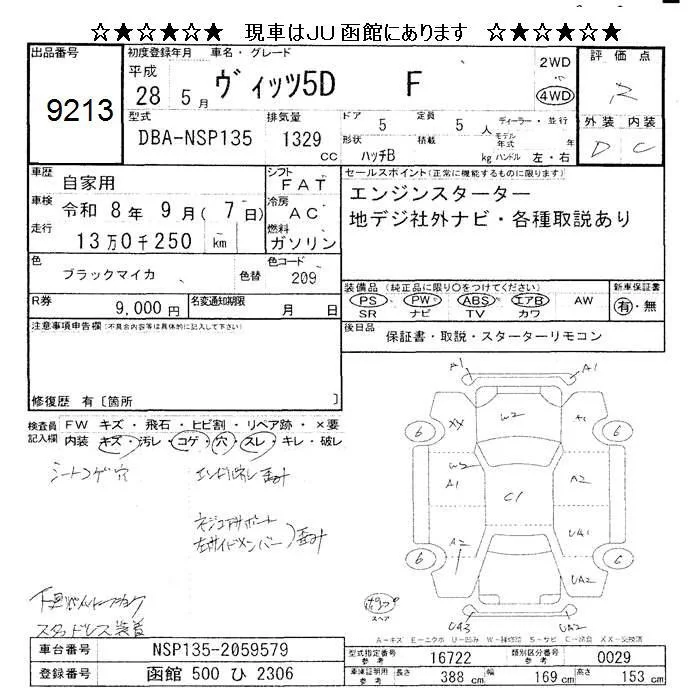 ☆★☆★☆★ 現車はJU函館にあります ☆★☆★☆★
出品番号 初度登録年月 車名・グレード 評価点
9213 平成 28 5月 ヴィッツ5D F 2WD 4WD R
型式 排気量 ドア 定員 ディーラー・並行 外装 内装
DBA-NSP135 1329 cc 5 5人 モデル年式 年 D C
形状 積載
ハッチB kg ハンドル 左・右
車歴 自家用 シフト FAT セールスポイント(正常に機能するものに限ります)
車検 令和 8年 9月(7日) 冷房 AC エンジンスターター
走行 13万0千250 km 燃料 ガソリン 地デジ社外ナビ・各種取説あり
色 ブラックマイカ 色替 色コード 209
装備品(純正品に限り○をつけてください) 新車保証書
R券 9,000円 名変通知期限 月 日 PS PW ABS エアB AW 有・無
SR ナビ TV カワ
注意事項申告欄(不具合内容等は具体的に記入して下さい) 後日品 保証書・取説・スターターリモコン
修復歴 有〔箇所 〕
検査員記入欄 FW キズ・飛石・ヒビ割・リペア跡・×要
内装 キズ・汚レ・コゲ・穴・スレ・キレ・破レ
シートコゲ穴
左サイドメンバー
スタッドレス装着
A1 A1
XX W2 A1
6 6
W2 A1 C1 A2
A2 UA1
6 6
UA2
スペア UA3 UA2
A−キズ E−エクボ U−凹み W−補修跡 S−サビ C−腐食 XX−交換済
車台番号 NSP135-2059579 型式指定番号 参考 16722 類別区分番号 参考 0029
登録番号 函館 500 ひ 2306 車検証明記載 参考 長さ 388 cm 幅 169 cm 高さ 153 cm